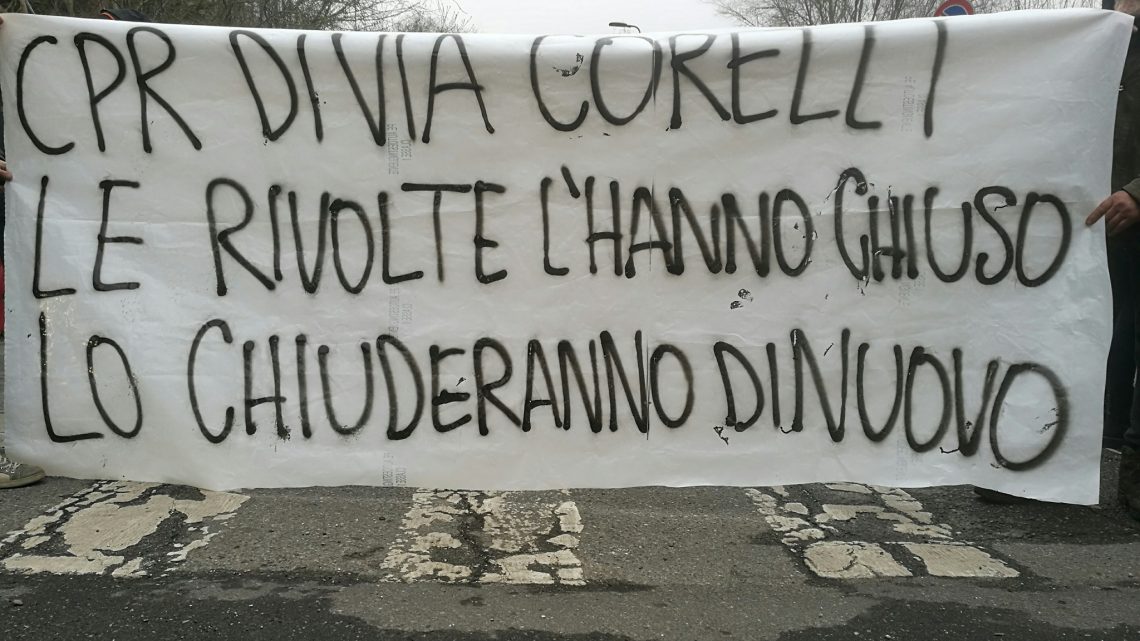 CPR DI VIA CORELLI
LE RIVOLTE L'HANNO CHIUSO
LO CHIUDERANNO DI NUOVO